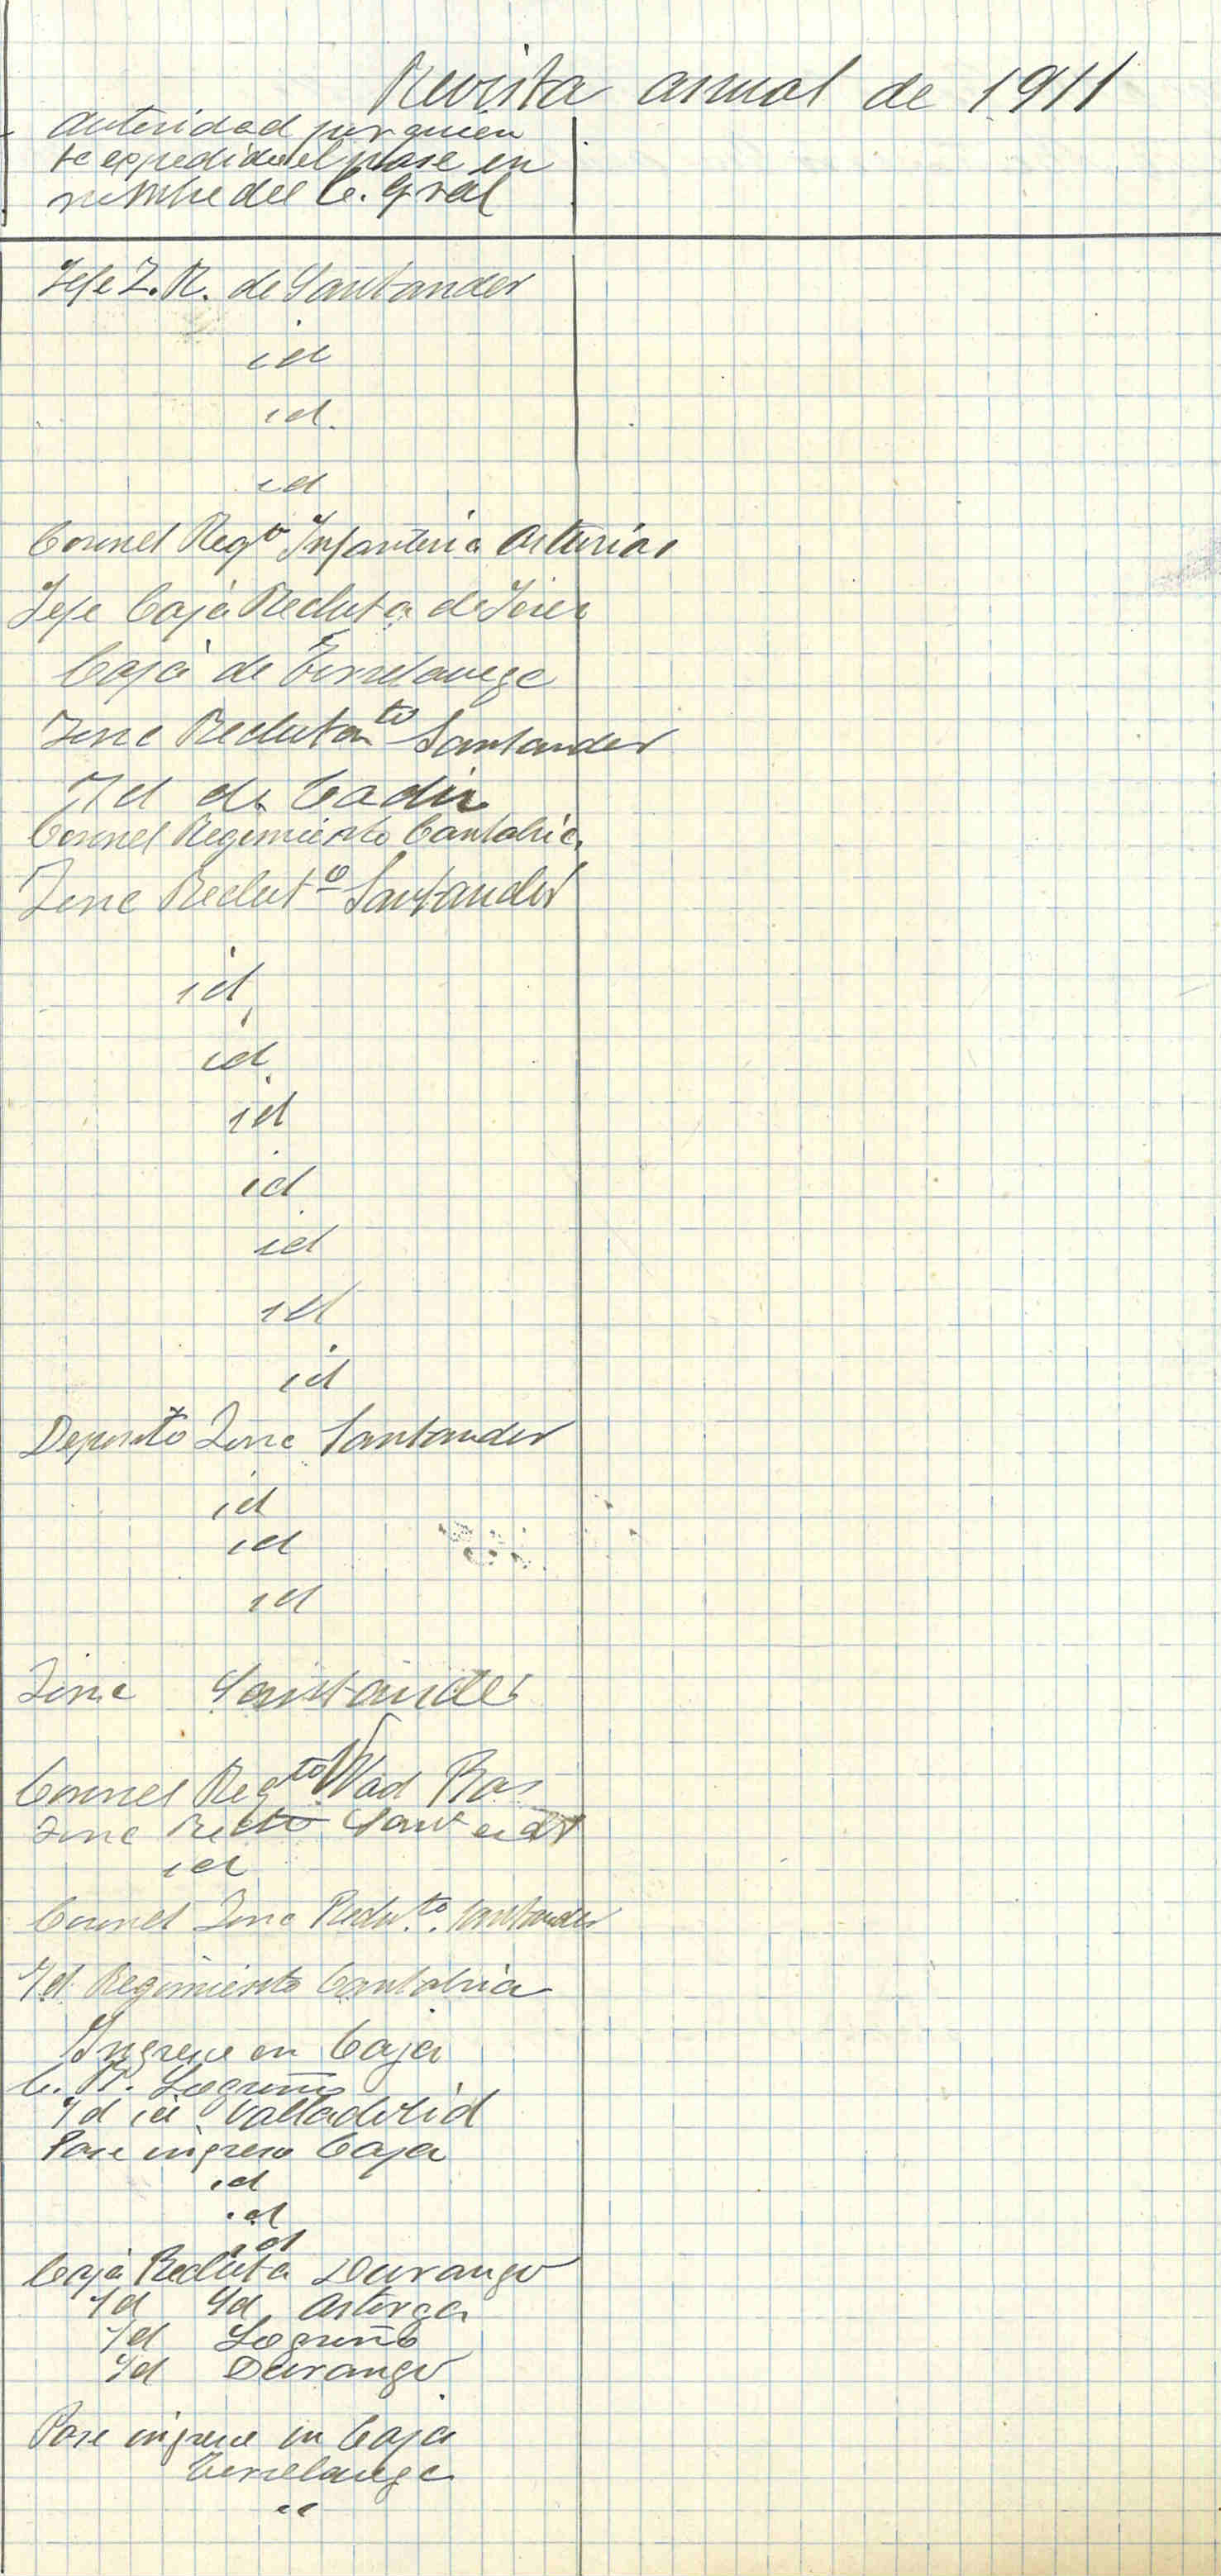 Revista anual de 1911
Autoridad por quien
fe expedido el pase en
nombre del C. Gral
Jefe Z. R. de Santander
id
id.
id
Coronel Regto Infanteria Asturias
Jefe Caja Recluta de Jerez
Caja de Torrelavega
Zona Reclutamto Santander
Id de Cadiz
Coronel Regimiento Cantabria
Zona Reclutº Santander
id
id
id
id
id
id
id
Deposito Zona Santander
id
id
id
Zona Santander
Coronel Regto Wad Ras
Zona Rectto Santander
id
Coronel Zona Reclu.to. Santander
Id Regimiento Cantabria
Ingreso en Caja
C. R. Logroño
Id id Valladolid
Pase ingreso Caja
id
id
id
Caja Recluta Durango
Id Id Astorga
Id Logroño
Id Durango
Pase ingreso en Caja
Torrelavega
"